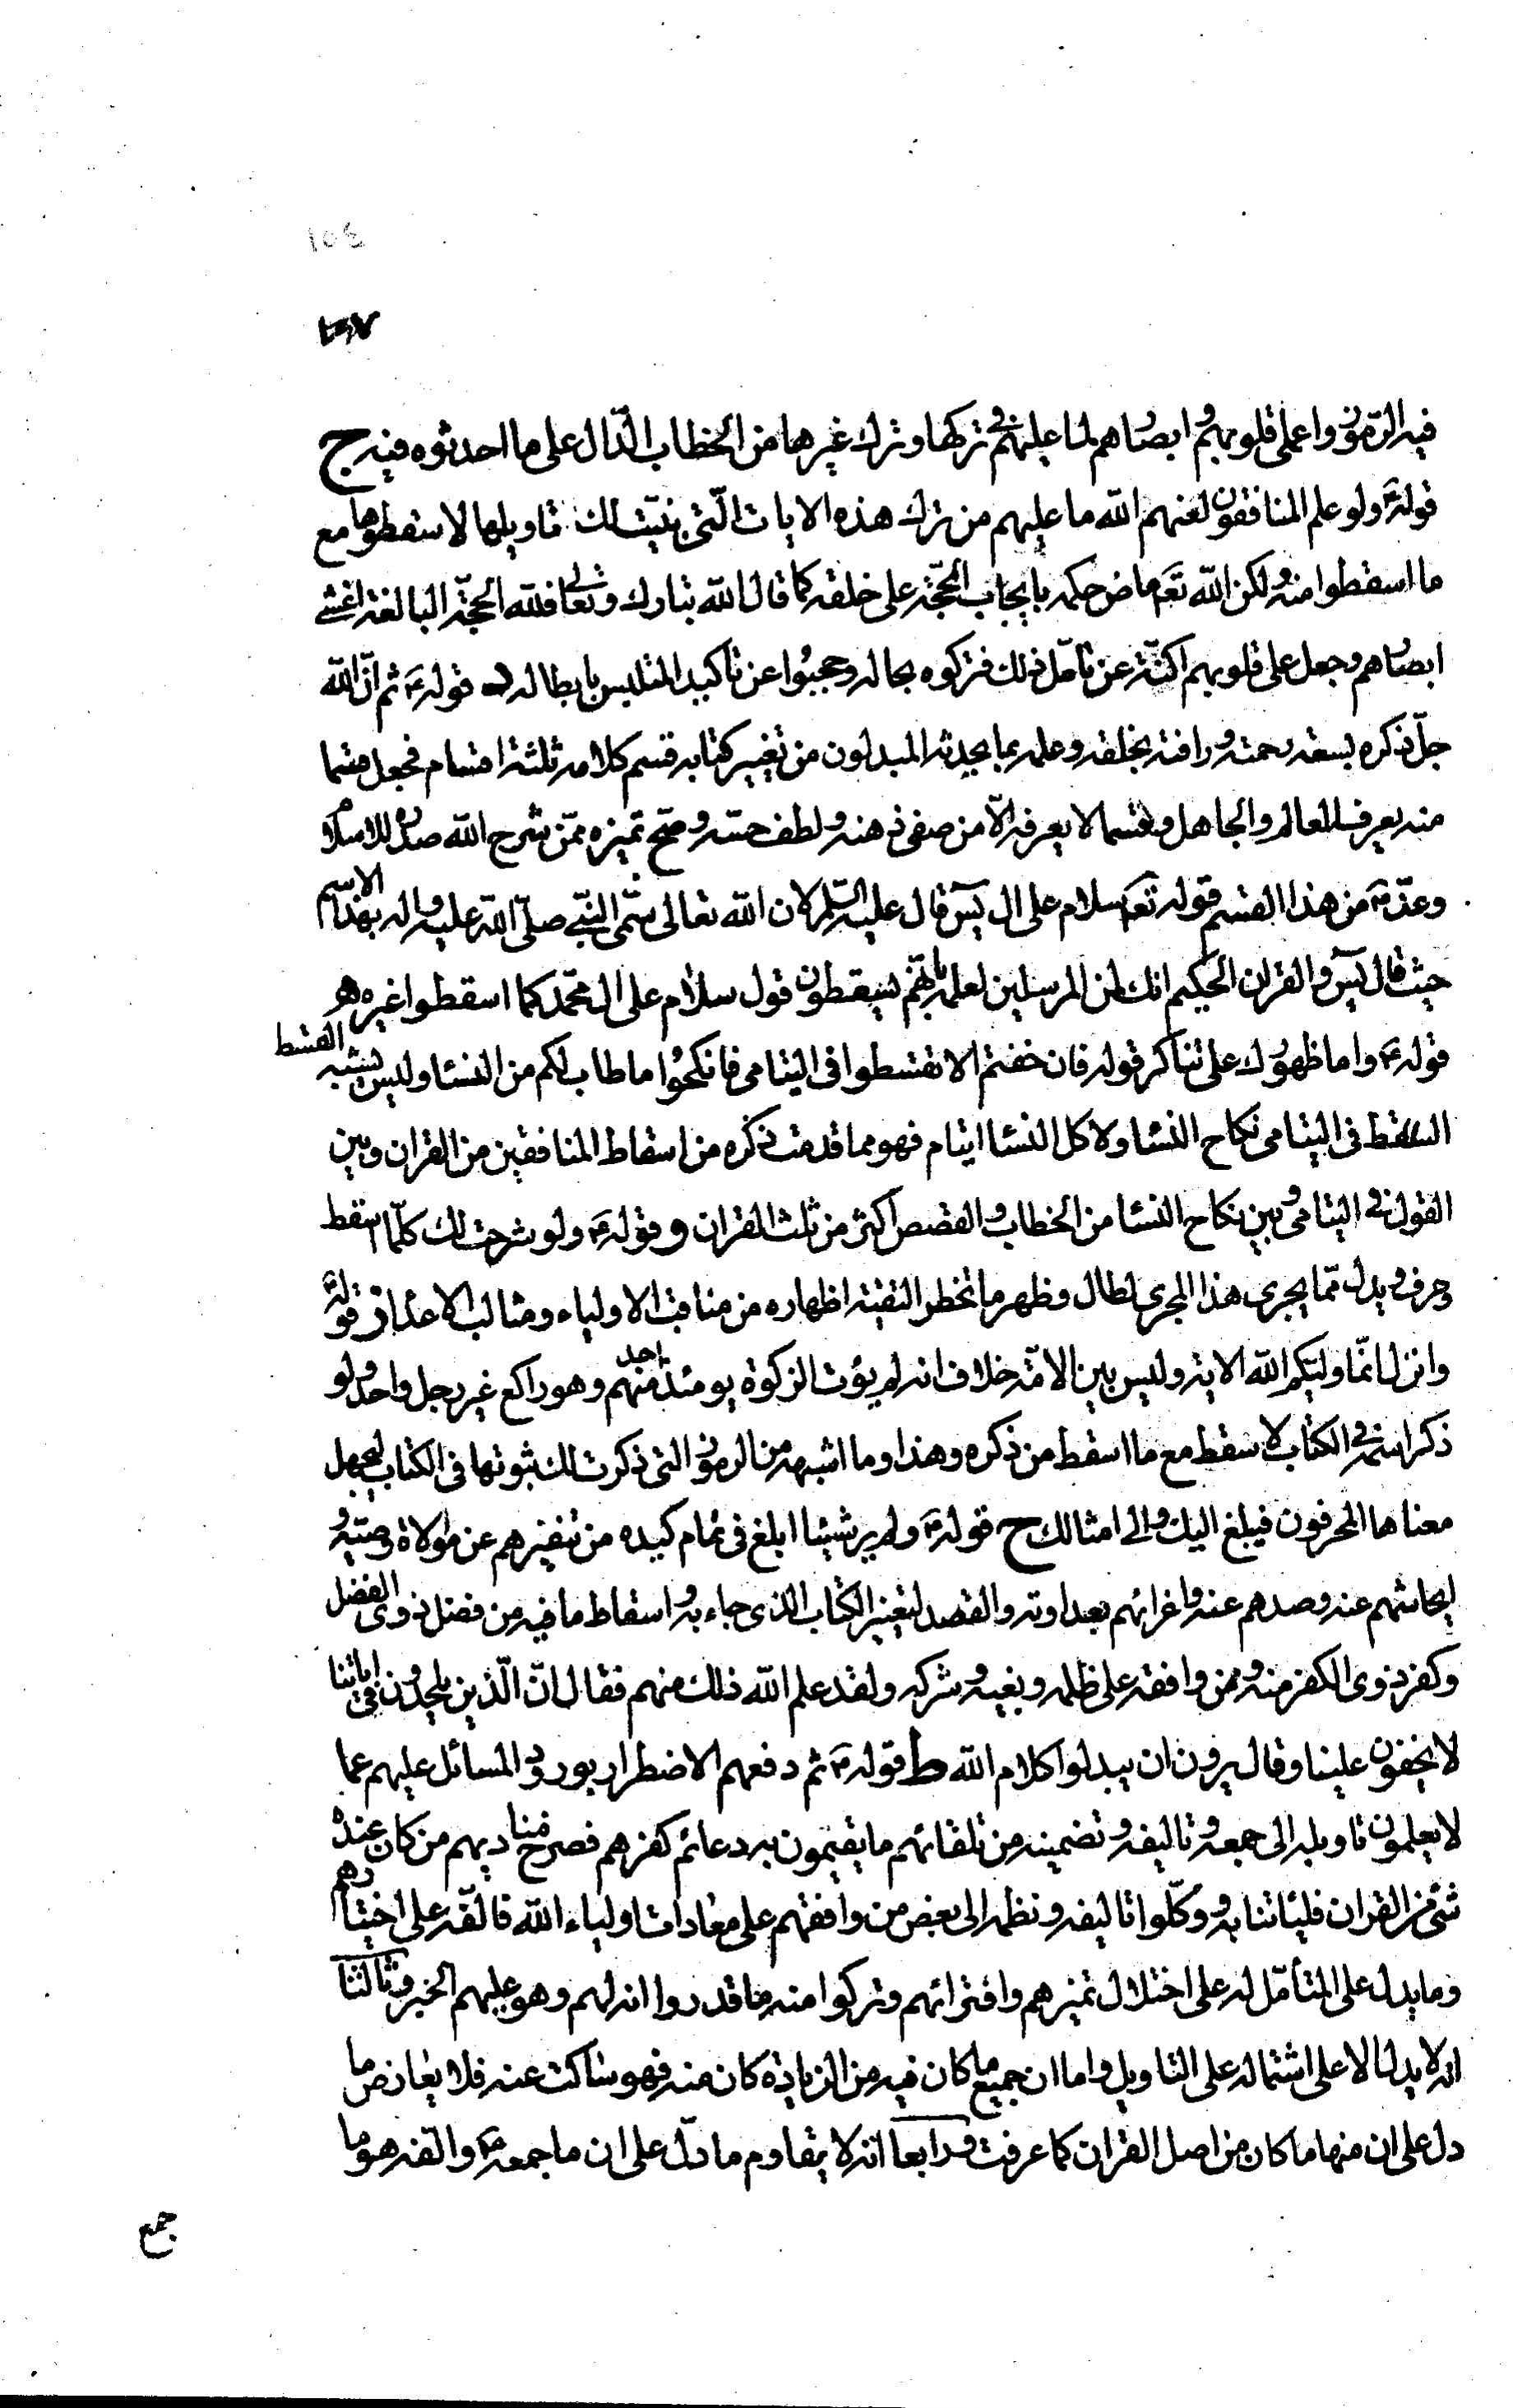 ١٥٤
فيه الرموز واعمى قلوبهم وابصاهم لما عليهم في تركها وترك غيرها من الخطاب الدّال على ما احدثوه فيه ج
قوله ع ولو علم المنافقون لعنهم الله ما عليهم من ترك هذه الايات الّتى بيّنت لك تاويلها لاسقطوها مع
ما اسقطوا منه ولكن الله تعَ ماض حكمه بايجاب الحجّة على خلقه كما قال الله تبارك وتعالى فلله الحجّة البالغة اغشى
ابصاهم وجعل على قلوبهم اكنّة عن تامّل ذلك فتركوه بحاله وحجبُوا عن تاكيد الملبس بابطاله د قوله ع ثم انّ الله
جلّ ذكره لسعة رحمته ورافته بخلقه وعلمه بما يحدثه المبدلون من تغيير كتابه قسم كلامه ثلثة اقسام فجعل قسما
منه يعرفه العالم والجاهل وقسما لا يعرفه الّا من صفى ذهنه ولطف حسّه وصحّ تميزه ممّن شرح الله صدره للاسلام
وعدّ ع من هذا القسم قوله تعَ سلام على ال يسَ قال عليه السّلم لان الله تعالى سمّى النبيّ صلّى الله عليه واله بهذا الاسم
حيث قال يسَ والقران الحكيم انك لمن المرسلين لعلمه بانّهم يسقطون قول سلام على ال محمّد كما اسقطوا غيره هو
قوله ع واما ظهورك على تناكر قوله فان خفتم الا تقسطوا فى اليتامى فانكحُوا ما طاب لكم من النسا وليس يشبه القسط
القسط فى اليتامى نكاح النسا ولا كل النسا ايتام فهو مما قدمت ذكره من اسقاط المنافقين من القران وبين
القول فى اليتامى وبين نكاح النسا من الخطاب والقصص اكثر من ثلث القران و قوله ع ولو شرحت لك كلّما اسقط
وحرف وبدل ممّا يجرى هذا المجرى لطال وظهر ما تحظر التقيّة اظهاره من مناقب الاولياء ومثالب الاعداء ز قوله ع
وانزل انّما وليّكم الله الاية وليس بين الامّة خلاف انه لم يؤت الزكوة يومئذ احد منهم وهو راكع غير رجل واحد ولو
ذكر اسمه فى الكتاب لاسقط مع ما اسقط من ذكره وهذا وما اشبهه من الرموز التى ذكرت لك ثبوتها فى الكتاب ليجهل
معناها المحرفون فيبلغ اليك والى امثالك ح قوله ع ولم ير شيئا ابلغ فى تمام كيده من تنفيرهم عن مُولاة وصيّه و
ايحاشهم عنه وصدهم عنه واغرائهم بعداوته والقصد لتغيير الكتاب الذى جاء به واسقاط ما فيه من فضل ذوى الفضل
وكفر ذوى الكفر منه وممن وافقه على ظلمه وبغيه وشركه ولقد علم الله ذلك منهم فقال انّ الّذين يلحدون فى اياتنا
لا يخفون علينا وقال يرون ان يبدلوا كلام الله ط قوله ع ثم دفعهم الاضطرار بورود المسائل عليهم عما
لا يعلمون تاويله الى جمعه وتاليفه وتضمينه من تلقائهم ما يقيمون به دعائم كفرهم فصرخ مناديهم من كان عنده
شئ من القران فلياتنا به ووكّلوا تاليفه ونظمه الى بعض من وافقهم على معُادات اولياء الله فالّفه على اختيارهم
وما يدل على المتأمّل له على اختلال تميزهم وافترائهم وتركوا منه ما قدروا انه لهم وهو عليهم الخبر وثالثا
انه لا يدل الا على اشتماله على التاويل واما ان جميع ما كان فيه من الزيادة كان منه فهو ساكت عنه فلا يعُارض ما
دل على ان منها ما كان من اصل القران كما عرفت ورابعا انه لا يقاوم ما دلّ على ان ما جمعه ع والّفه هو ما
جمع